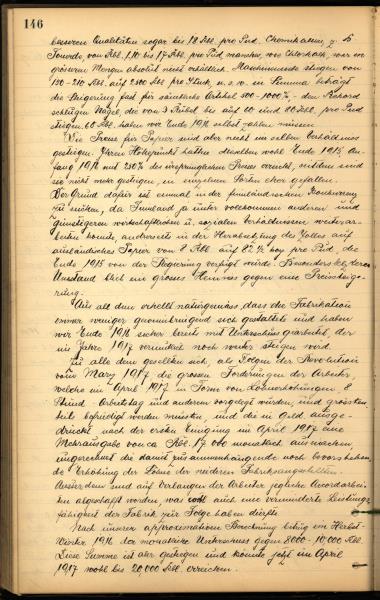 146
besseren Qualitäten sogar bis 18 Rbl. pro Pud. Chemikalien z. B.
Souvds, von Rbl. 1,10 bis 17 Rbl. pro Pud, manches, wie Chlorkalk, war in
grösseren Mengen absolut nicht erhältlich. Maschinensiebe stiegen von
150-210 Rbl. auf 2400 Rbl. pro Stück, u.s.w. in Summa beträgt
die Steigerung fast für sämtliche Artikel 500-1000% - den Rekord
schlugen Nägel, die von 3 Rubel bis auf 60 und 80 Rbl. pro Pud
stiegen, 60 Rbl. haben wir Ende 1916 selbst zahlen müssen.
Die Preise für Papier sind aber nicht im selben Verhältnis
gestiegen. Ihren Höhepunkt hatten dieselben wohl Ende 1915, An-
fang 1916 mit 250% des ursprünglichen Preises erreicht, seitdem sind
sie nicht mehr gestiegen, in einzelnen Sorten eher gefallen.
Der Grund dafür ist einmal in der finnländischen Konkurrenz
zu suchen, da Finnland ja unter vollkommen anderen und
günstigeren wirtschaftlichen u. sozialen Verhältnissen weiterar-
beiten konnte, anderseits in der Herabsetzung des Zolles auf
ausländisches Papier von 2 Rbl. auf 82½ kop. pro Pud, die
Ende 1915 von der Regierung verfügt wurde. Besonders letzterer
Umstand blieb ein grosses Hemnis gegen eine Preissteige-
rung.
Aus all dem erhellt naturgemäss, dass die Fabrikation
immer weniger gewinnbringend sich gestaltete und haben
wir Ende 1916 sicher bereits mit Unterschuss gearbeitet, der
im Jahre 1917 vermutlich noch weiter steigen wird.
Zu alle dem gesellten sich, als Folgen der Revolution
vom März 1917 die grossen Forderungen der Arbeiter,
welche im April 1917 in Form von Lohnerhöhungen, 8
Stund.-Arbeitstag und anderen vorgelegt wurden, und grössten-
teils befriedigt werden mussten, und die in Geld ausge-
drückt nach der ersten Einigung im April 1917 eine
Mehrausgabe von ca Rbl. 17 000 monatlich ausmachen,
ungerechnet die damit zusammenhängende noch bevorstehen-
de Erhöhung der Löhne der niederen Fabriksangestellten.
Ausserdem sind auf Verlangen der Arbeiter jegliche Accordarbei-
ten abgeschafft worden, was wohl auch eine verminderte Leistungs-
fähigkeit der Fabrik zur Folge haben dürfte.
Nach unserer approximativen Berechnung betrug im Herbst-
Winter 1916 der monatliche Unterschuss gegen 8000-10,000 Rbl.
Diese Summe ist aber gestiegen und könnte jetzt im April
1917 wohl bis 20,000 Rbl. erreichen.